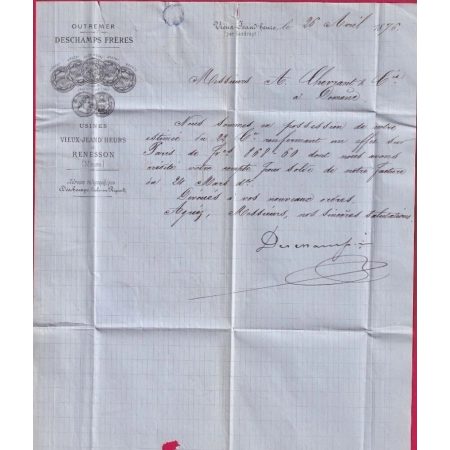 OUTREMER
DESCHAMPS FRÈRES
USINES
VIEUX-JEAND'HEURS
RENESSON
(Meuse)
Adresse télégraphique
Vieux-Jeand'heurs, le 26 Avril 1875
Messieurs A. & Cie
à
Nous sommes en possession de votre
estimée du 22 Ct renfermant un effet sur
Paris de Frs 168.60 dont nous avons
crédité votre compte pour solde de notre facture
du 24 Mars dr.
Dévoués à vos nouveaux ordres,
Agréez, Messieurs, nos sincères salutations
Deschamps